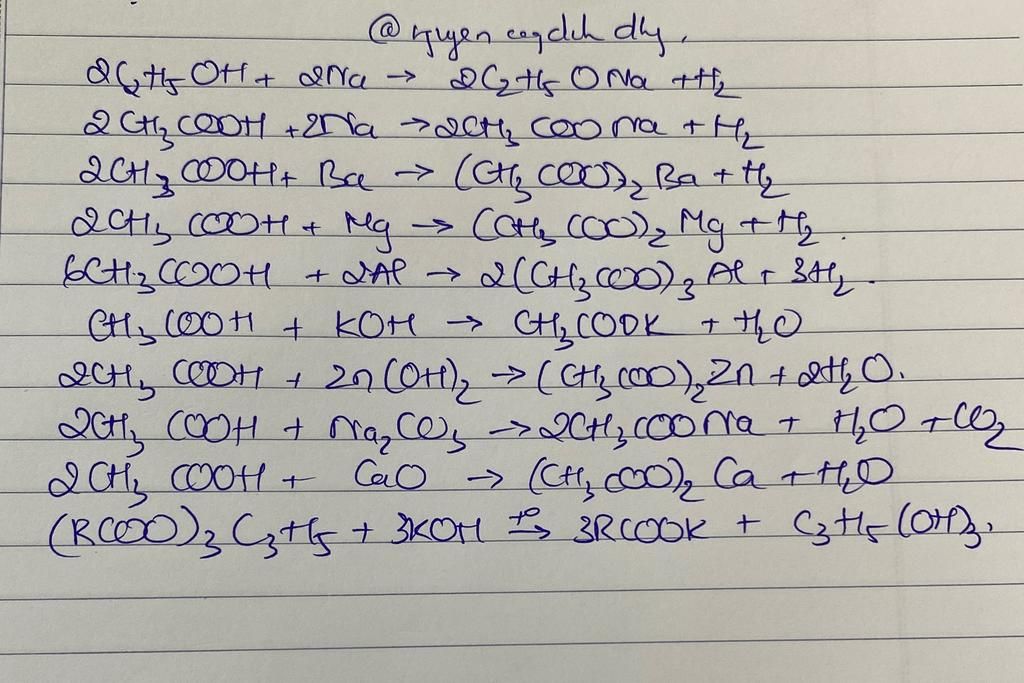 @nguyen
2C₂H₅OH + 2Na → 2C₂H₅ONa + H₂
2CH₃COOH + 2Na → 2CH₃COONa + H₂
2CH₃COOH + Ba → (CH₃COO)₂Ba + H₂
2CH₃COOH + Mg → (CH₃COO)₂Mg + H₂.
6CH₃COOH + 2Al → 2(CH₃COO)₃Al + 3H₂.
CH₃COOH + KOH → CH₃COOK + H₂O
2CH₃COOH + Zn(OH)₂ → (CH₃COO)₂Zn + 2H₂O.
2CH₃COOH + Na₂CO₃ → 2CH₃COONa + H₂O + CO₂
2CH₃COOH + CaO → (CH₃COO)₂Ca + H₂O
(RCOO)₃C₃H₅ + 3KOH t° → 3RCOOK + C₃H₅(OH)₃.